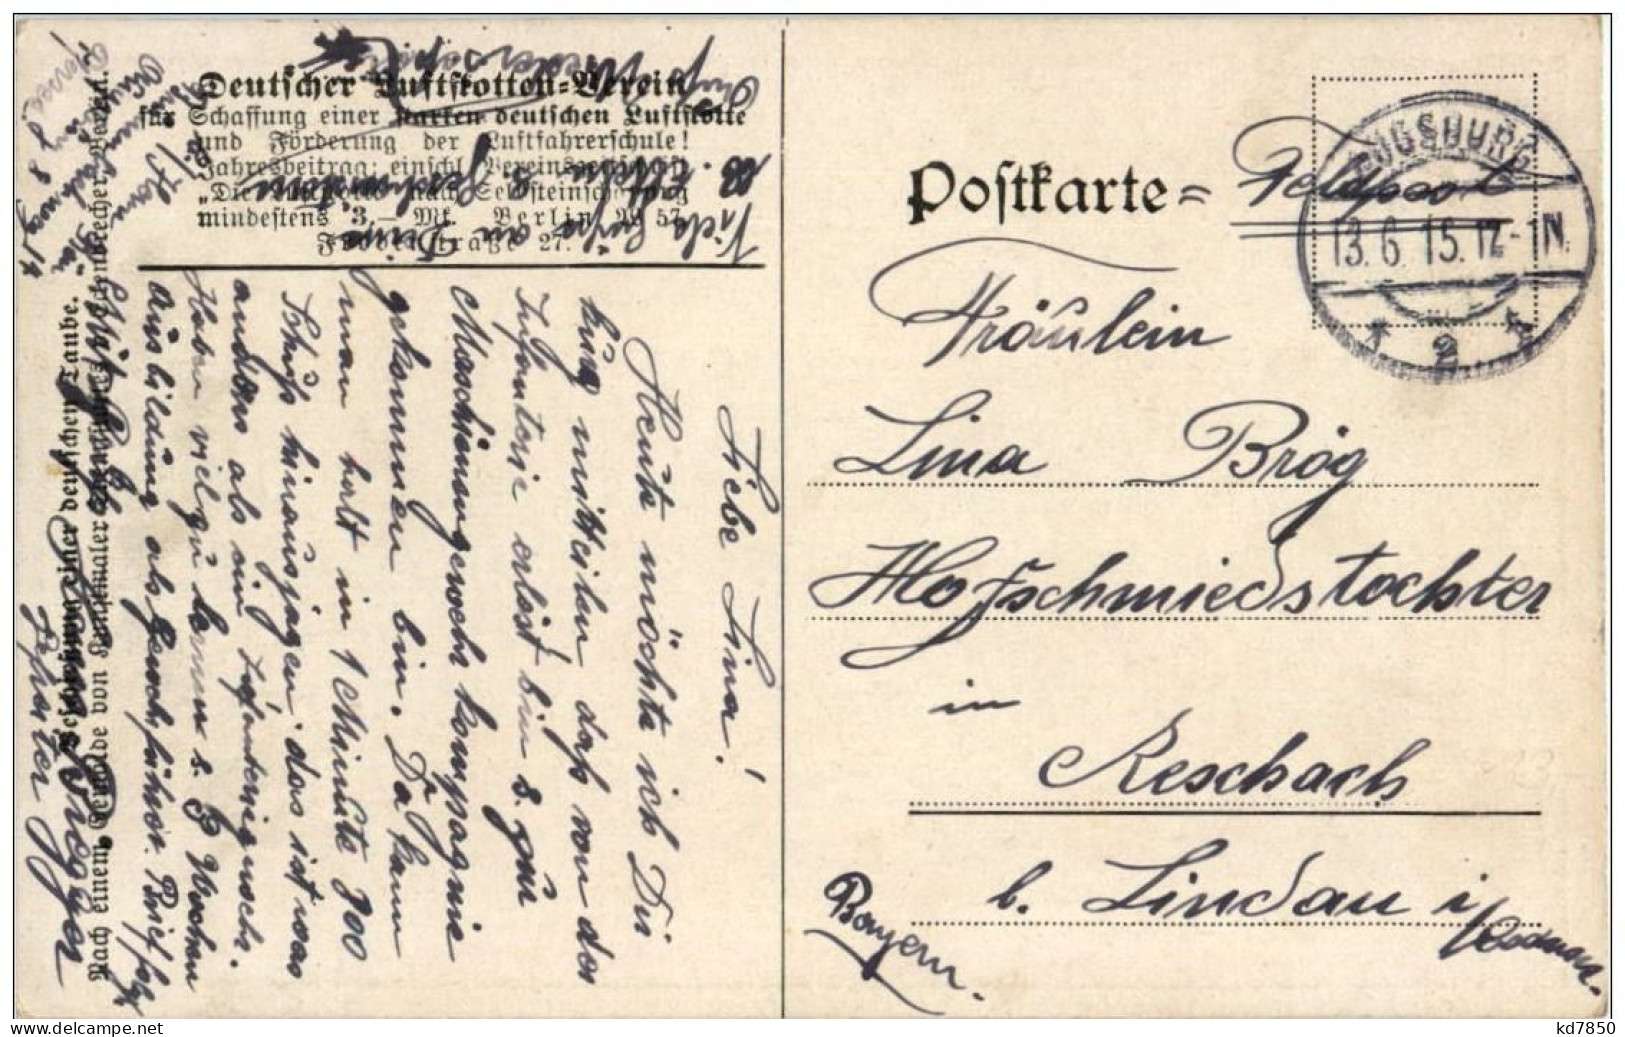 Deutscher Luftflotten-Verein
für Schaffung einer starken deutschen Luftflotte
und Förderung der Luftfahrerschule!
Jahresbeitrag: einschl. Vereinszeitschrift
"Die Luftflotte" nach Selbsteinschätzung
mindestens 3.— Mk. Berlin W 57.
Frobenstraße 27.
Liebe Lina!
Heute möchte ich Dir
kurz mitteilen daß von der
Infanterie erlöst bin u. zur
Maschienengewehrkompagnie
gekommen bin. Da kann
man halt in 1 Minute 800
Schuß hinausjagen das ist was
anders als ein Infanteriegewehr.
Haben viel zu lernen u. 8 Wochen
Ausbildung als Gewehrführer. Brief folgt
Viele Grüße an Deine
Auf Wiedersehen
Beschießung einer deutschen Taube.
Nach einem Gemälde von Kunstmaler
Postkarte = Feldpost
AUGSBURG
13.6.15.12-1N.
* 2 *
Fräulein
Lina Brög
Hofschmiedstochter
in
Reschach
b. Lindau i/Bodensee.
Bayern.
kd7850